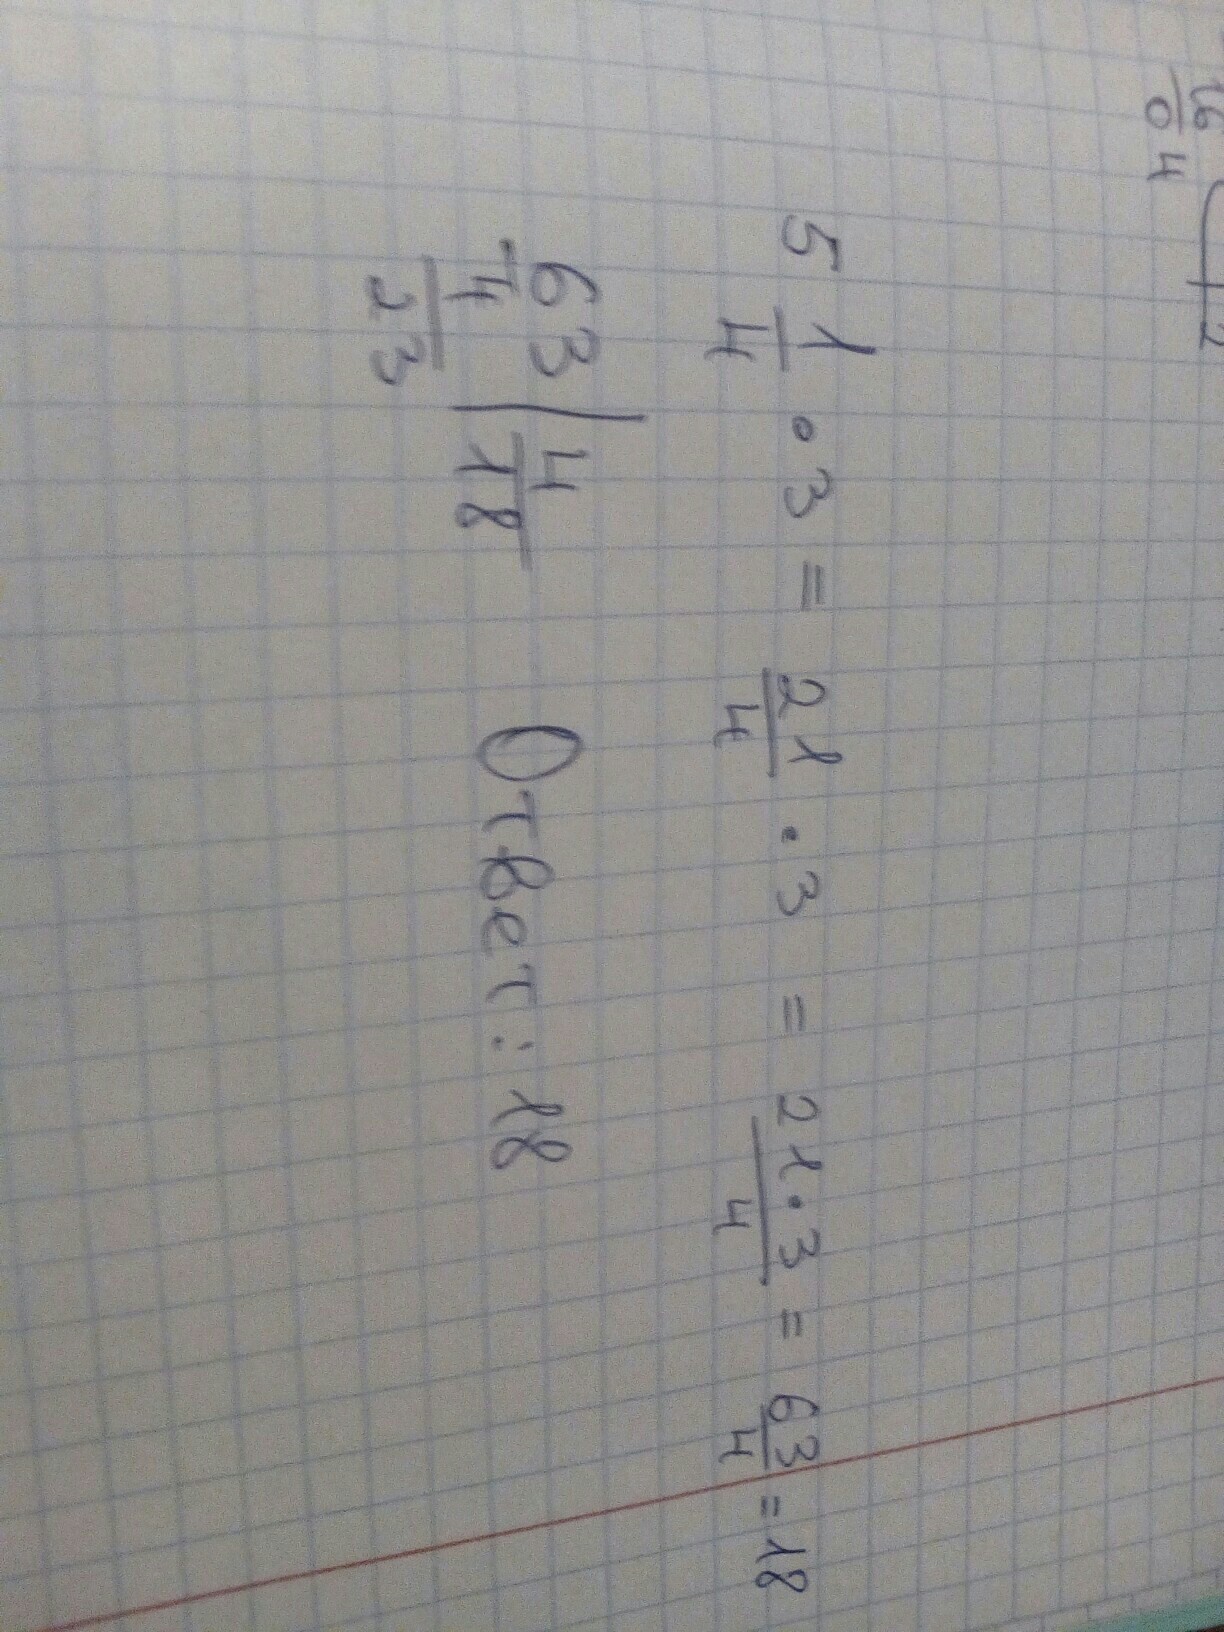 16
04 2
5 1/4 • 3 = 21/4 • 3 = 21•3/4 = 63/4 = 18
63 | 4
-4 | 18
23
Ответ: 18